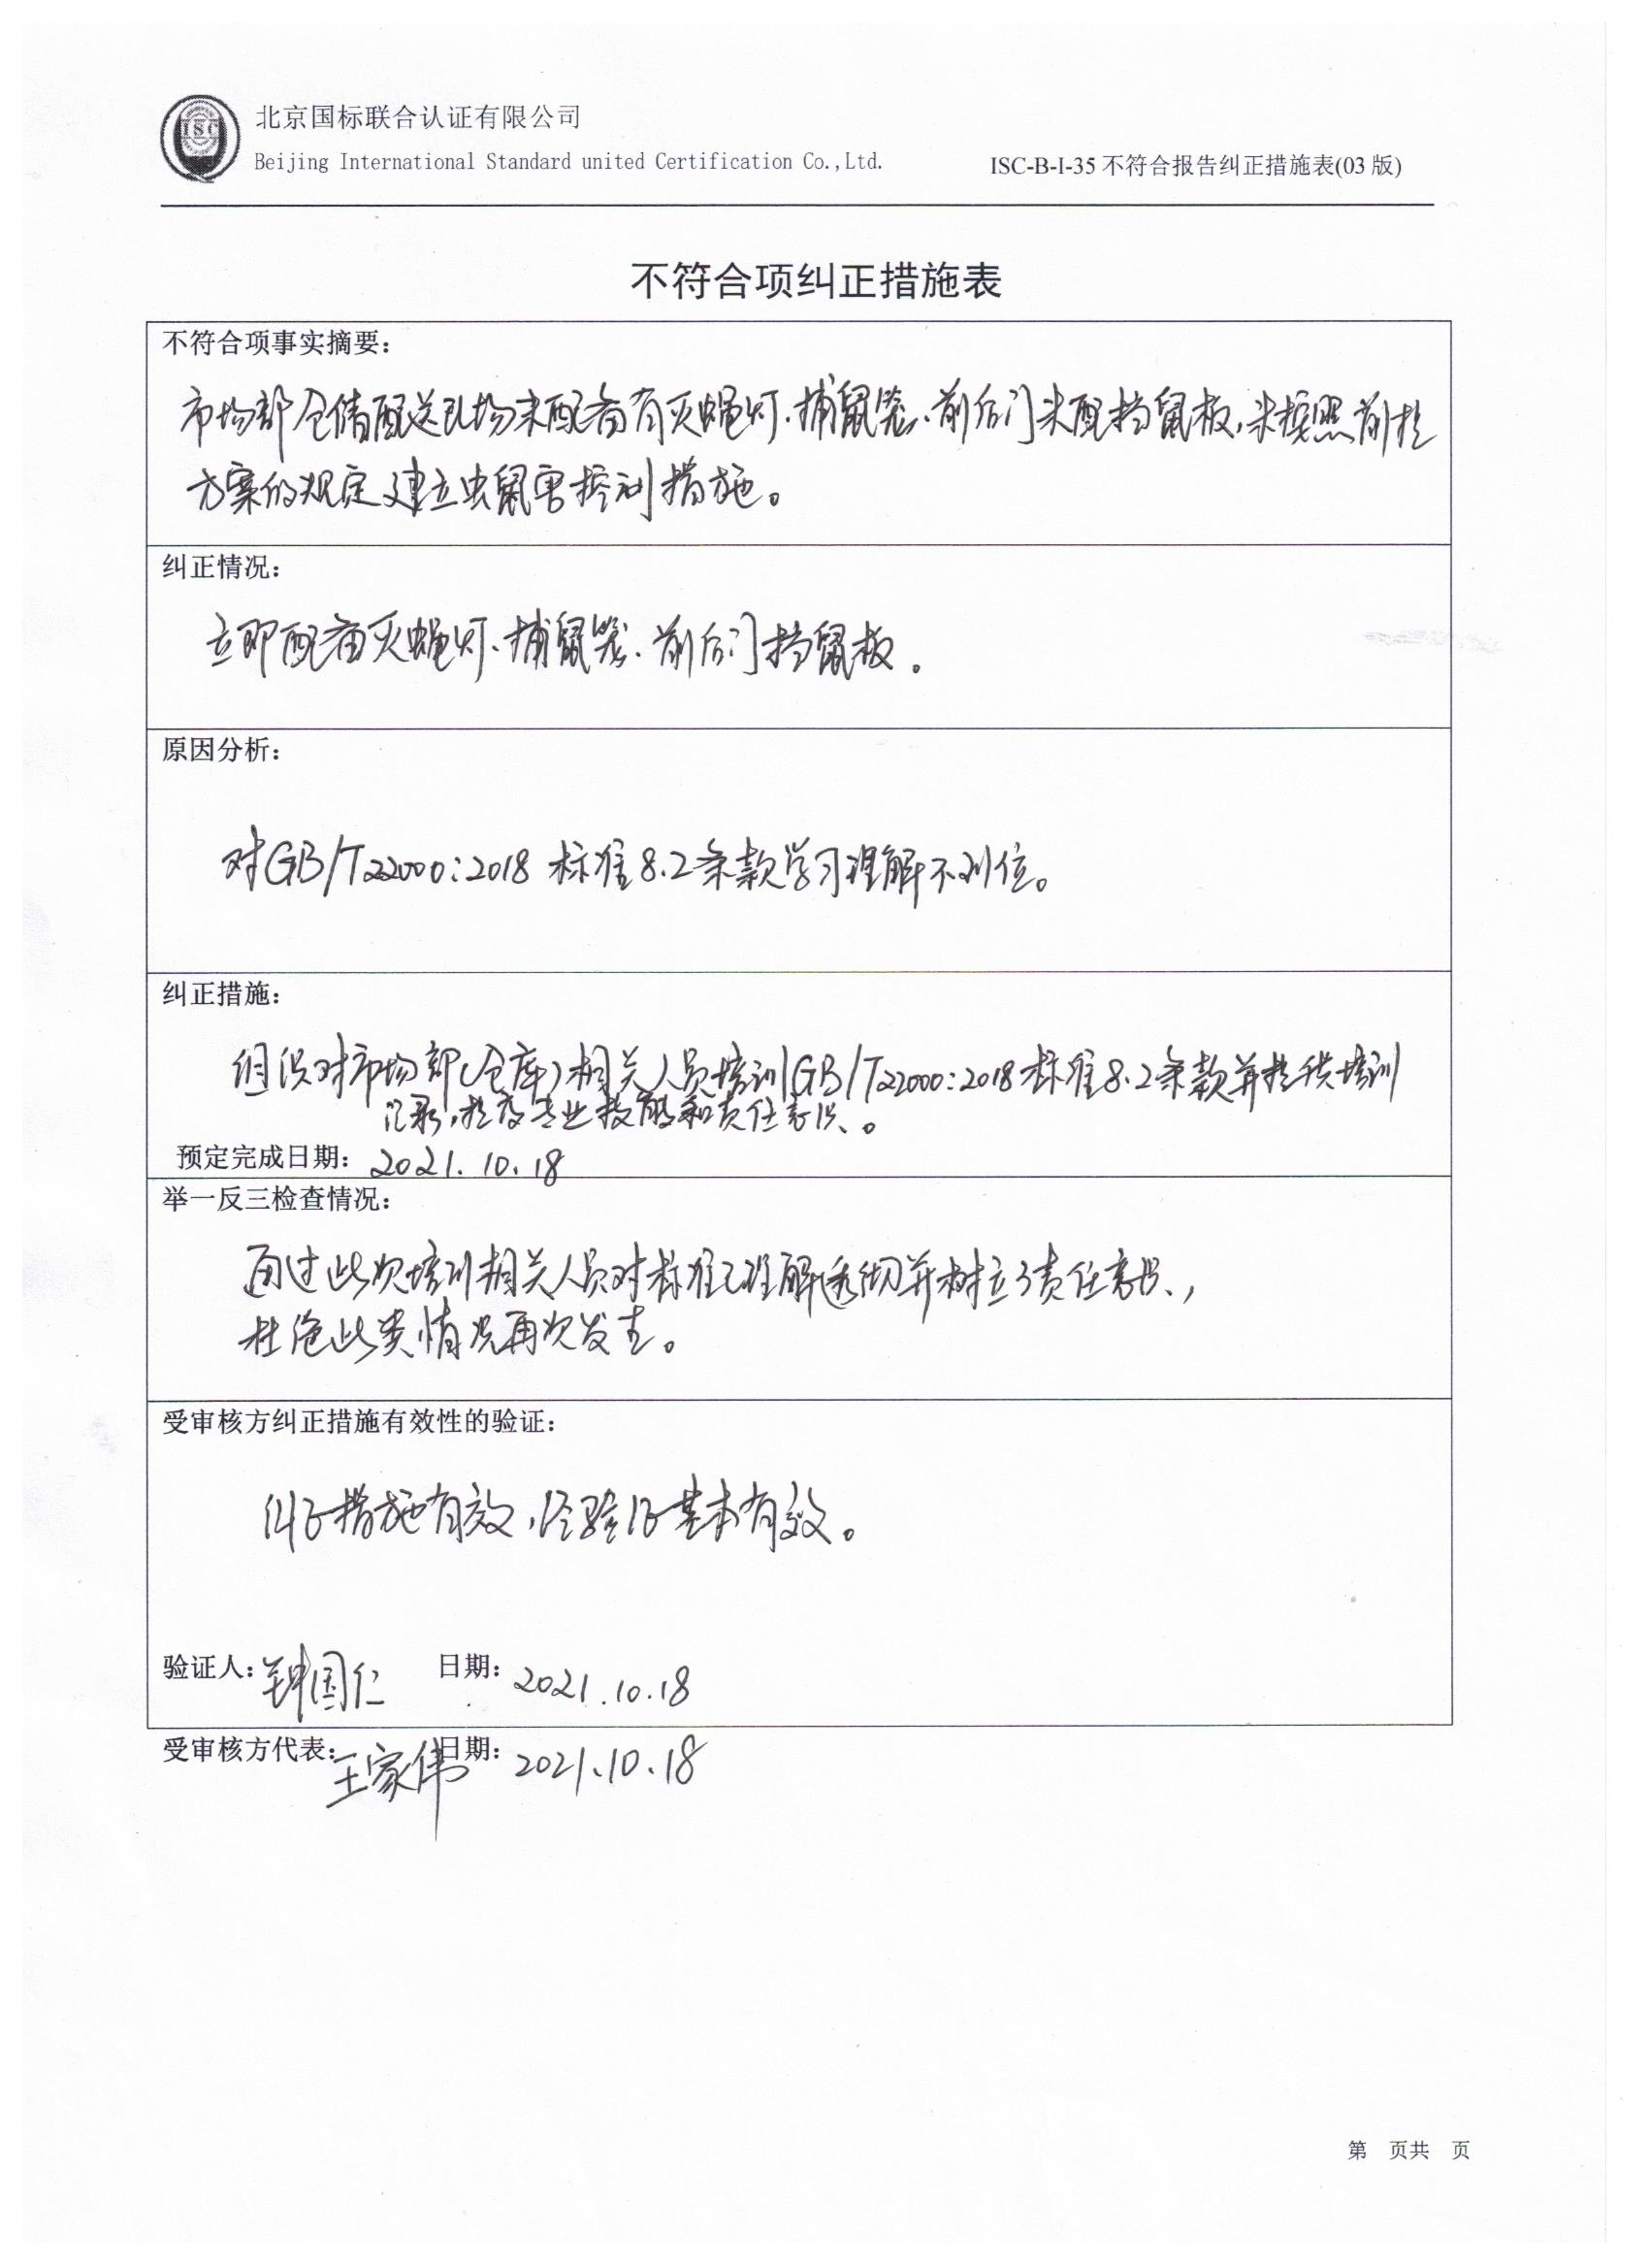 北京国标联合认证有限公司
Beijing International Standard united Certification Co.,Ltd.
ISC-B-I-35 不符合报告纠正措施表(03 版)
不符合项纠正措施表
不符合项事实摘要：
市场部仓储配送现场未配备有灭蝇灯、捕鼠笼、前后门未配挡鼠板，未按照前提
方案的规定建立虫鼠害控制措施。
纠正情况：
立即配备灭蝇灯、捕鼠笼、前后门挡鼠板。
原因分析：
对GB/T22000:2018 标准8.2条款学习理解不到位。
纠正措施：
组织对市场部（仓库）相关人员培训GB/T22000:2018标准8.2条款并提供培训
记录，提高专业技能和责任意识。
预定完成日期：2021.10.18
举一反三检查情况：
通过此次培训相关人员对标准已理解透彻并树立了责任意识，
杜绝此类情况再次发生。
受审核方纠正措施有效性的验证：
纠正措施有效，经验证基本有效。
验证人：钟国仁 日期：2021.10.18
受审核方代表：王家伟 日期：2021.10.18
第 页共 页